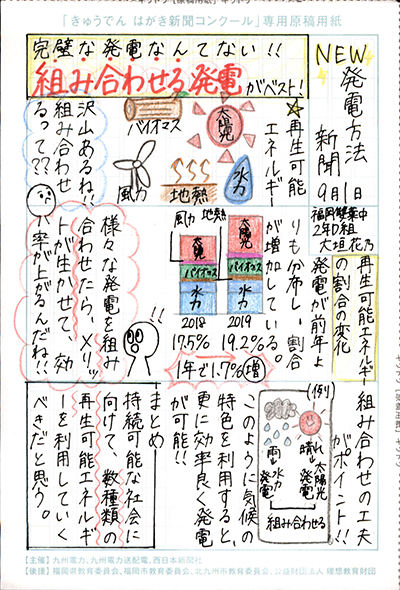 「きゅうでん はがき新聞コンクール」専用原稿用紙
NEW
発電方法
新聞
9月1日
福岡雙葉中
2年D組
大垣花乃
完璧な発電なんてない!!
組み合わせる発電がベスト!
☆再生可能
エネルギー
太陽光
バイオマス
水力
地熱
風力
沢山あるね!!
組み合わせ
るって??
再生可能エネルギー
の割合の変化
発電が前年よ
りも分布し、割合
が増加している。
風力
地熱
太陽
バイオマス
水力
2018
17.5%
太陽光
バイオマス
水力
2019
19.2%
1年で1.7%増
!!
様々な発電を組み
合わせたら、メリッ
トが生かせて、効
率が上がるんだね!!
組み合わせの工夫
がポイント!!
(例)
晴れ
太陽光
発電
雨
水力
発電
組み合わせる
このように気候の
特色を利用すると、
更に効率良く発電
が可能!!
まとめ
持続可能な社会に
向けて、数種類の
再生可能エネルギ
ーを利用していく
べきだと思う。
【主催】九州電力、九州電力送配電、西日本新聞社
【後援】福岡県教育委員会、福岡市教育委員会、北九州市教育委員会、公益財団法人 理想教育財団